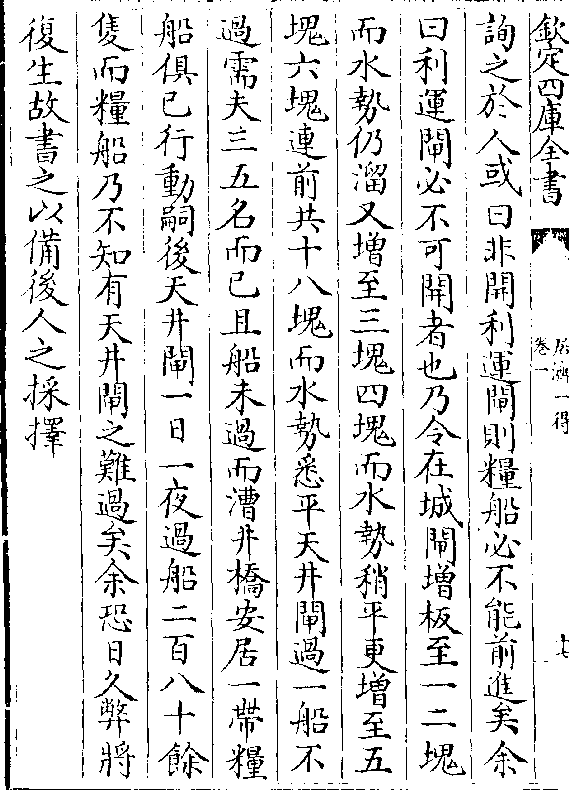 欽定四庫全書
居濟一得
卷一
十七
詢之於人或曰非開利運閘則糧船必不能前進矣余
曰利運閘必不可開者也乃令在城閘增板至一二塊
而水勢仍溜又增至三塊四塊而水勢稍平更增至五
塊六塊連前共十八塊而水勢悉平天井閘過一船不
過需夫三五名而已且船未過而漕井橋安居一帶糧
船俱已行動嗣後天井閘一日一夜過船二百八十餘
隻而糧船乃不知有天井閘之難過矣余恐日久弊將
復生故書之以備後人之採擇